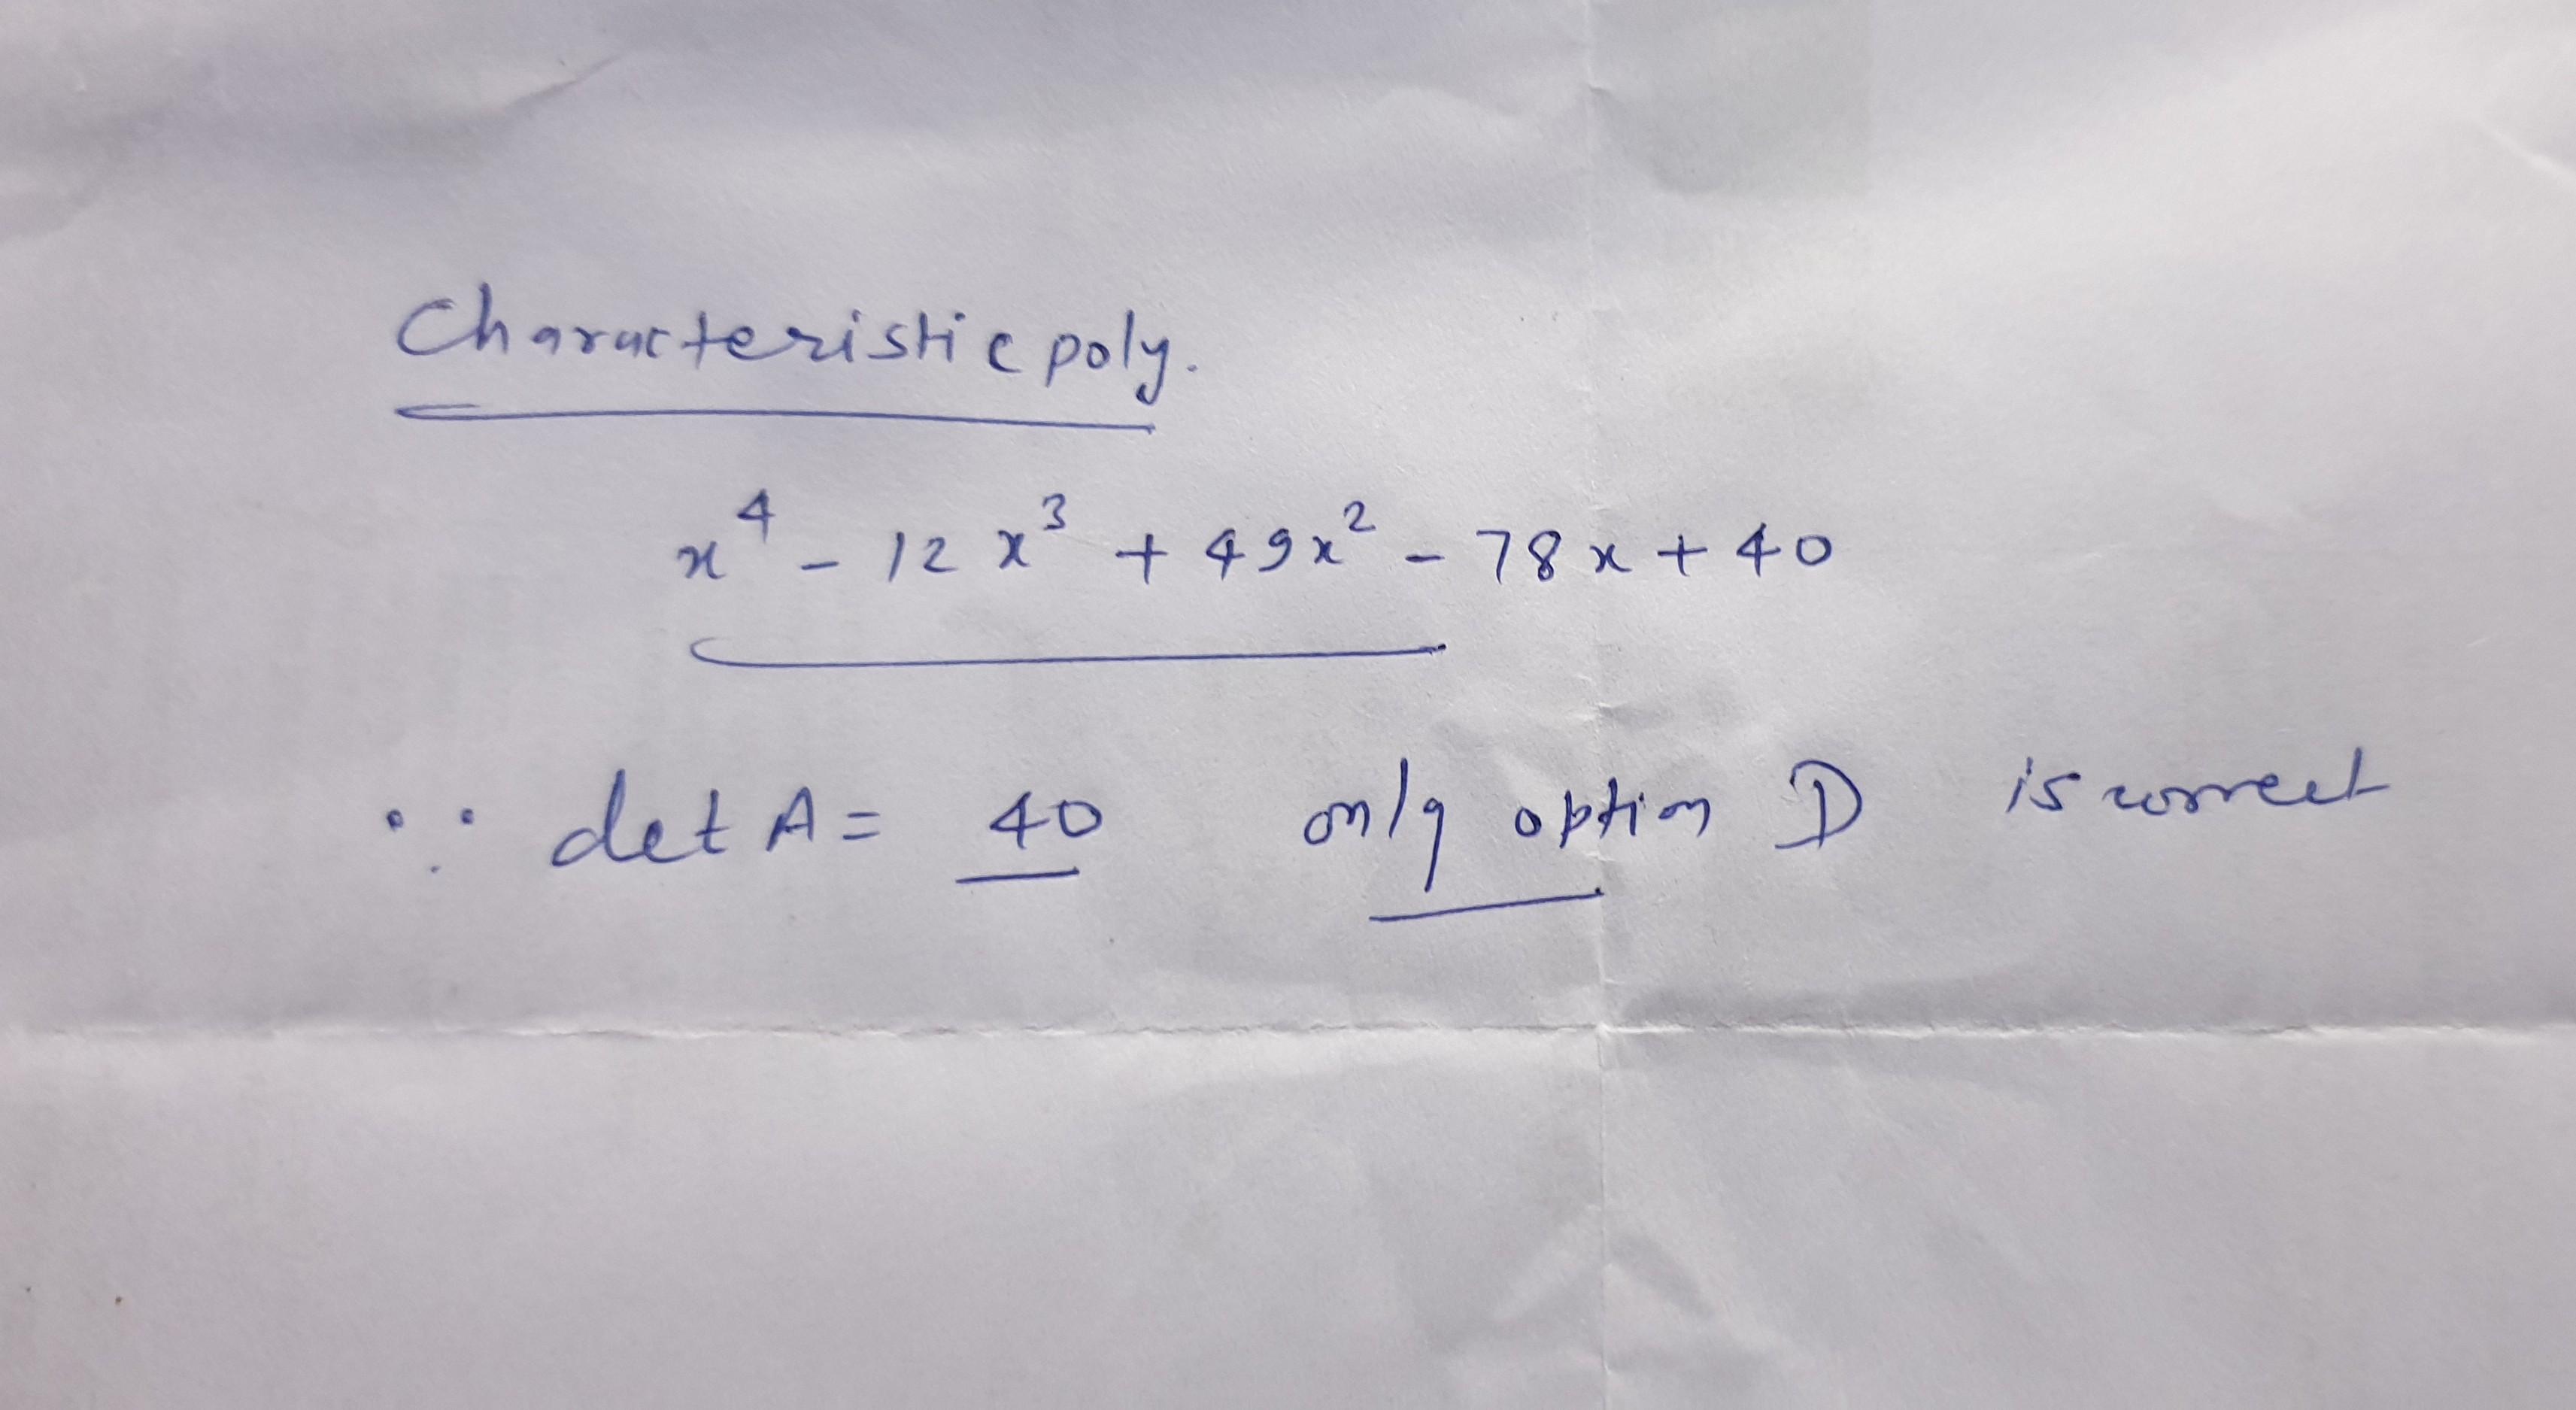 Characteristic poly.
x⁴ - 12x³ + 49x² - 78x + 40
∵ det A = 40 only option D is correct